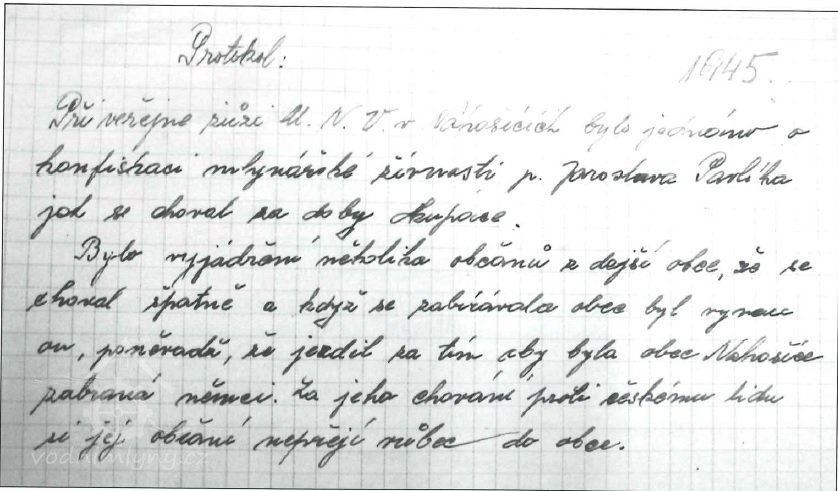 Protokol:
1945.
Při veřejne schůzi M. N. V. v Náhošicích bylo jednáno o
konfiskaci mlynářské živnosti p. Jaroslava Pavlíka
jak se choval za doby okupace.
Bylo vyjádření několika občanů z dejší obce, že se
choval špatně a když se zabirávala obec byl vynau
on, poněvadž, že jezdil za tím aby byla obec Nahošice
zabraná němci. Za jeho chování proti českému lidu
si jej občání nepřejí vůbec do obce.
vodnimlyny.cz